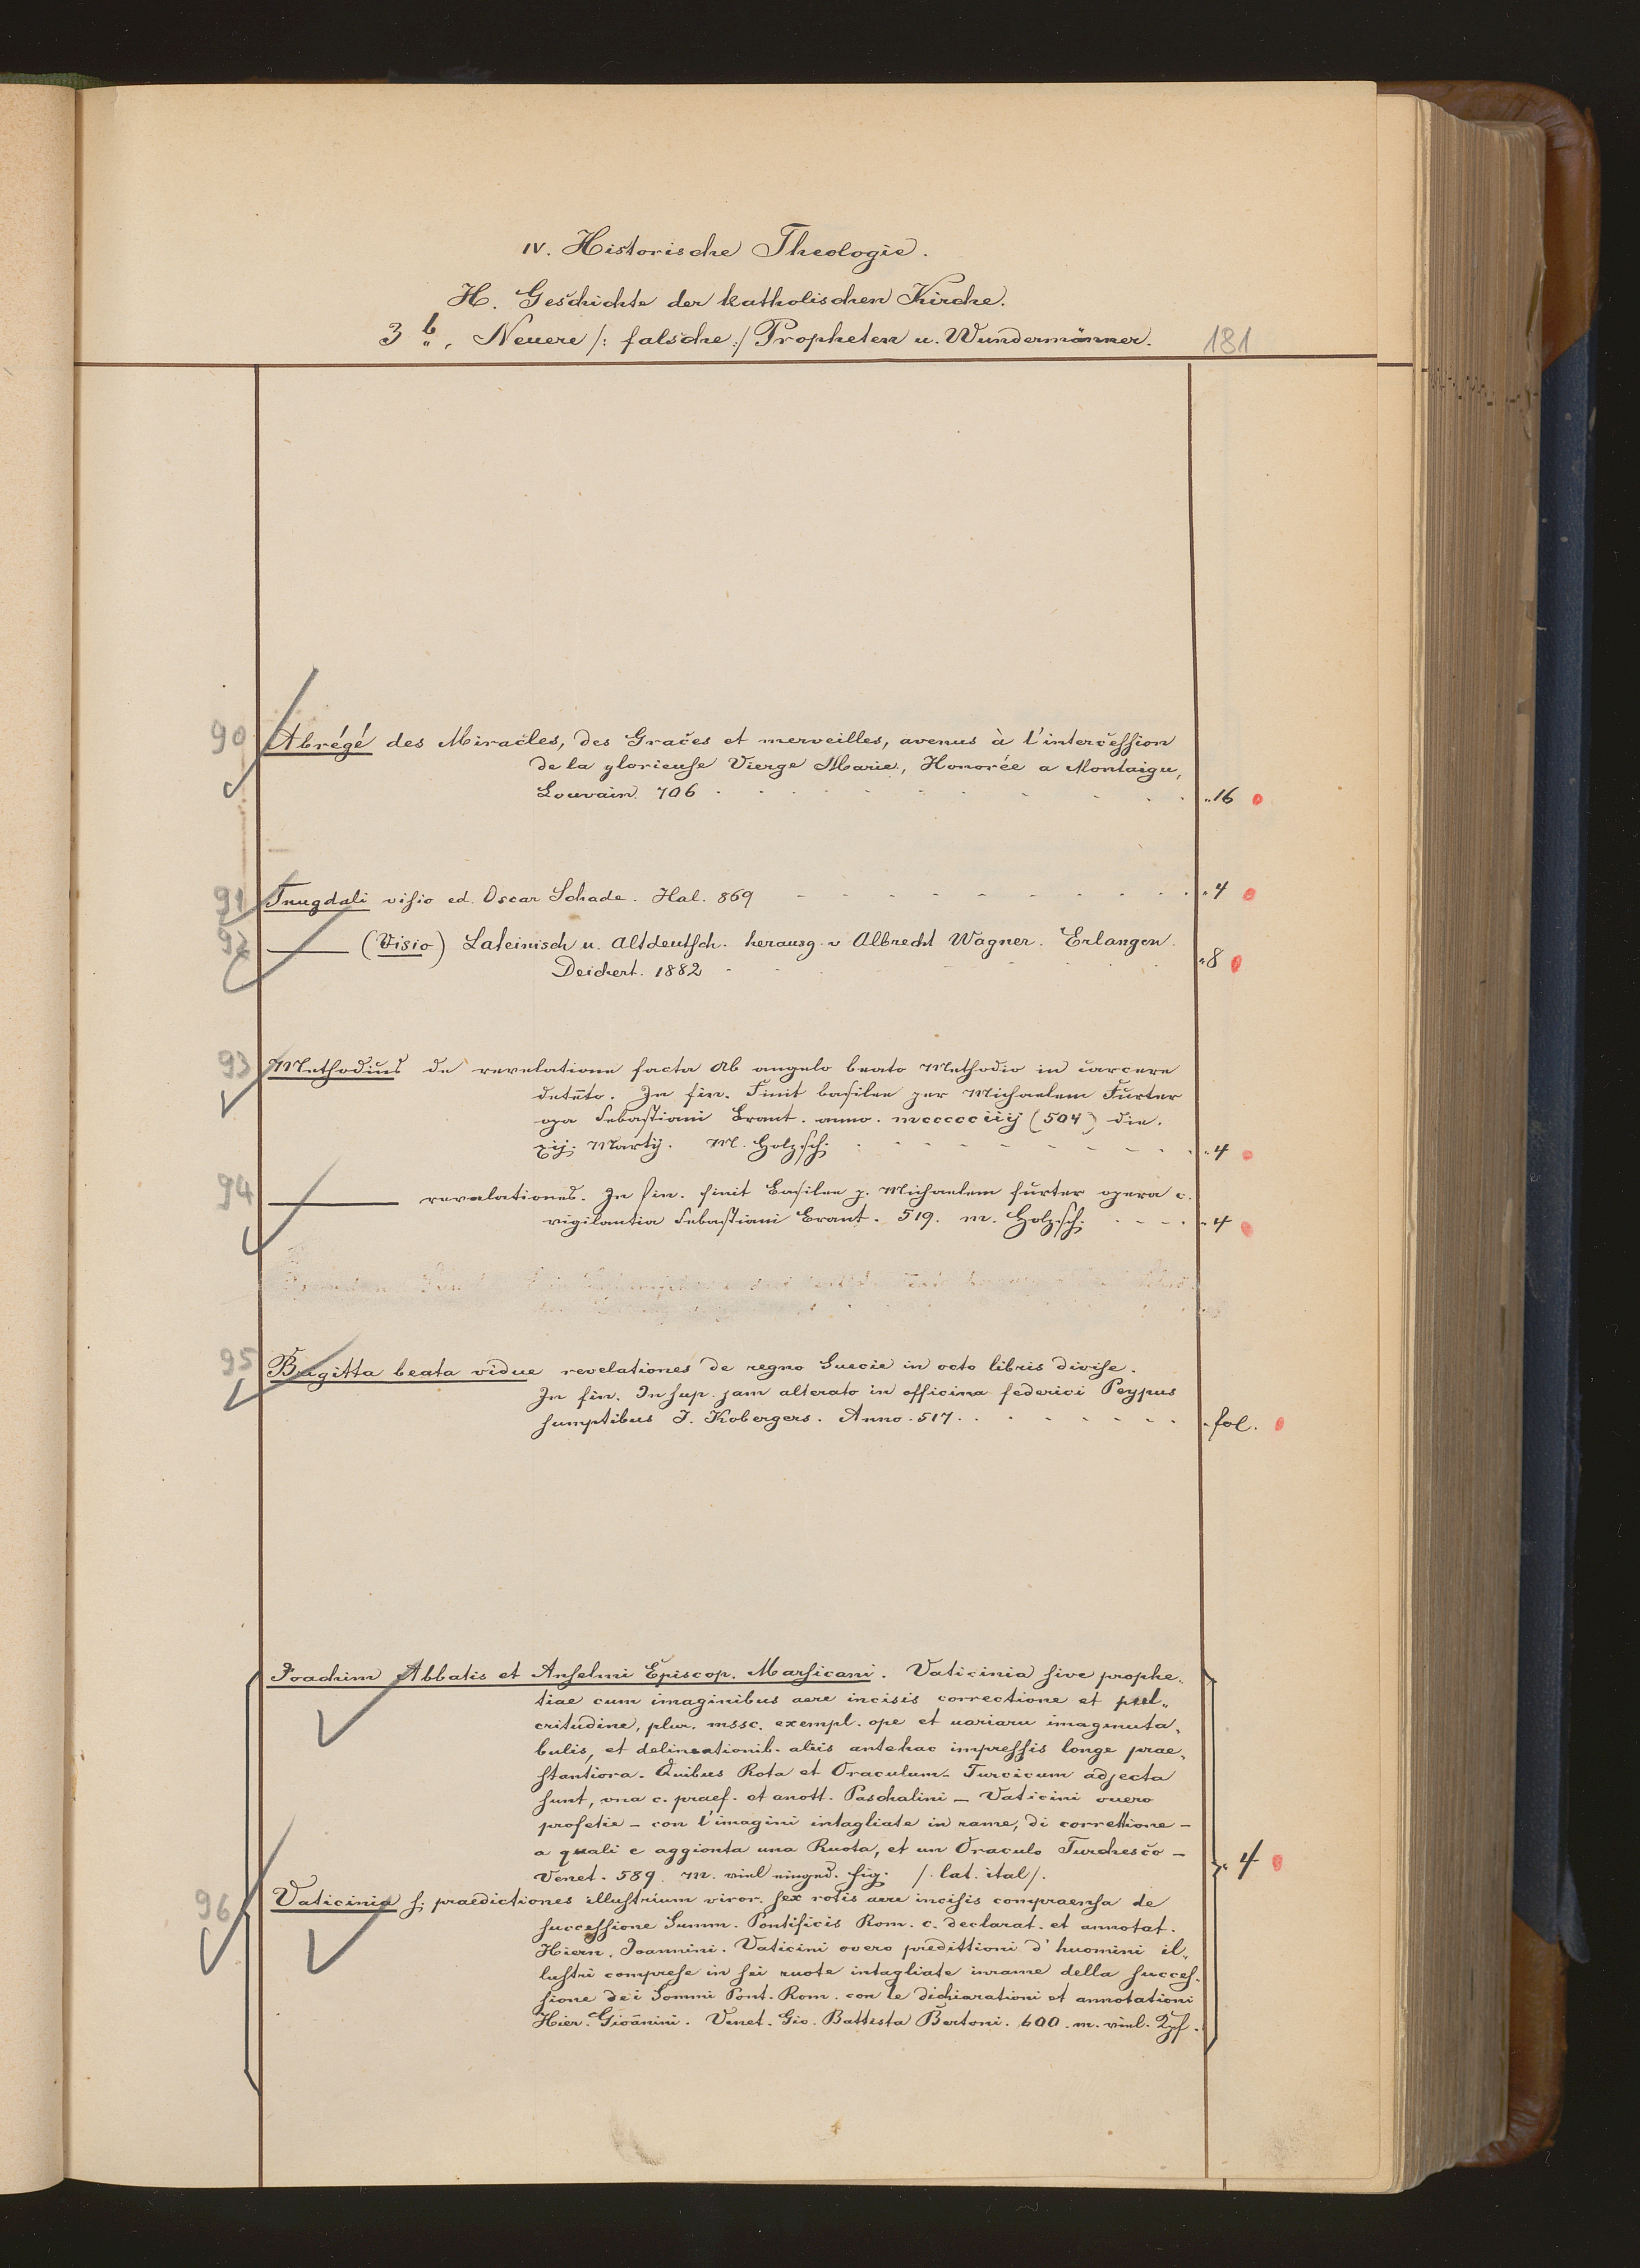 IV. Historische Theologie.
H. Geschichte der katholischen Kirche.
3 b. Neuere /: falsche :/ Propheten u. Wundermänner. 181
90 Abrégé des Miracles, des Graces et merveilles, avenus à l'intercession
de la glorieuse Vierge Marie, Honorée a Montaigu,
Louvain. 706 . . . . . . . . . . „ 16
91 Tnugdali visio ed. Oscar Schade. Hal. 869 - - - - - - - - - - „ 4
92 ——— (Visio) Lateinisch u. Altdeutsch. herausg. v Albrecht Wagner. Erlangen.
Deichert. 1882 . . . . . „ 8
93 Methodius de revelatione facta ab angelo beato Methodio in carcere
detēto. In fin. Finit basilee per Michaelem Furter
opa Sebastiani Brant. anno. mccccciiij (504) die.
xij. Martij. M. Holzsch. . . . . . . . „ 4
94 ——— revelationes. In fin. finit Basilee p. Michaelem furter opera c.
vigilantia Sebastiani Brant. 519. m. Holzsch. . . . . „ 4
95 Brigitta beata vidue revelationes de regno Suecie in octo libris divise.
In fin. In sup. jam alterato in officina federici Peypus
sumptibus J. Kobergers. Anno. 517. . . . . . . . „ fol.
Joachim Abbatis et Anselmi Episcop. Marsicani. Vaticinia sive prophe„
tiae cum imaginibus aere incisis correctione et pul„
critudine, plur. mssc. exempl. ope et uariaru imaginuta„
bulis, et delineationib. aliis antehac impressis longe prae„
stantiora. Quibus Rota et Oraculum Turcicum adjecta
sunt, vna c. praef. et anott. Paschalini — Vaticini ouero
profetie — con l'imagini intagliate in rame, di correttione —
a quali e aggionta una Ruota, et un Oraculo Turchesco —
Venet. 589. m. viel einged. fig. /. lat. ital /. „ 4
96 Vaticinia s. praedictiones illustrium viror. sex rotis aere incisis compraensa de
successione Summ. Pontificis Rom. c. declarat. et annotat.
Hiern. Joannini. Vaticini overo predittioni d'huomini il„
lustri comprese in sei ruote intagliate inrame della succes„
sione dei Sommi Pont. Rom. con le dichiarationi et annotationi
Hier. Gioānini. Venet. Gio. Battista Bertoni. 600. m. viel. Kpf.